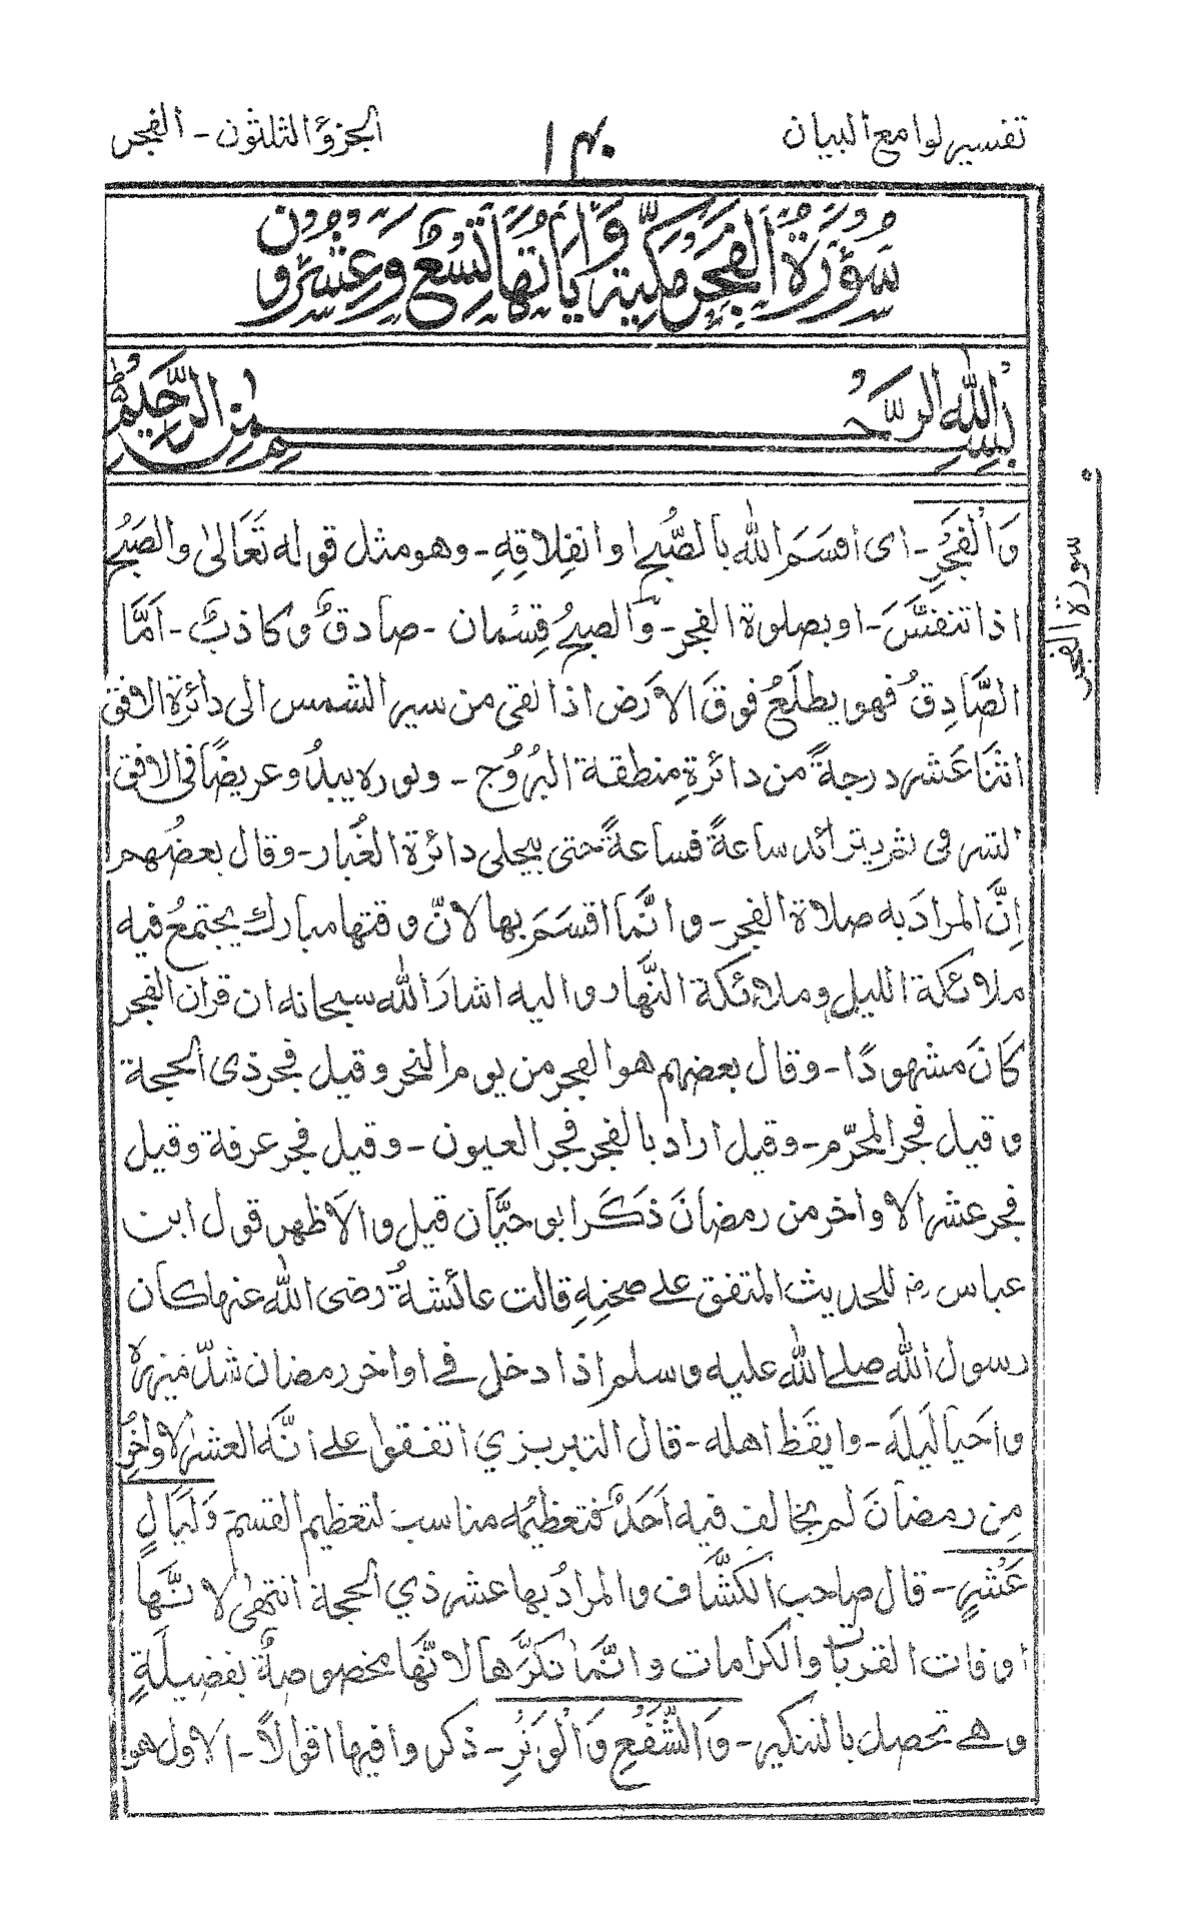 تفسير لوامع البيان
١٤٦
الجزؤ الثلثون - الفجر
سُوْرَةُ الْفَجْرِ مَكِّيَّة وَاٰيَاتُهَا تِسْعٌ وَعِشْرُوْنَ
بِسْمِ اللّٰهِ الرَّحْمٰنِ الرَّحِيْمِ
سورة الفجر
وَالْفَجْرِ - اى اقسَمَ اللّٰه بالصُّبح اوانفِلاقِهِ - وهو مثل قوله تَعَالىٰ والصُبح
اذا تنفسَّ - او بصلوة الفجر - وَالصبحُ قِسْمان - صادقٌ وكاذبٌ - اَمَّا
الصَّادِقُ فهو يطلَعُ فوقَ الارَض اذا لقى من سير الشمس الى دائرة الافق
اثنا عَشر درجةً من دائرةِ منطقة البرُوُج - ونوره يبدُو عريضًا فى الافق
الشرقى ثم يتزائد ساعةً فساعةً حتى ينجلى دائرة الغُبار - وقال بعضُهم
اِنَّ المرادَ به صلاة الفجر - وانَّما اقسَمَ بها لانّ وقتها مبارك يجتمعُ فيه
ملائكة الليل وملائكة النَّهار واليه اشارَ اللّٰه سبحانه ان قران الفجر
كَانَ مشهودًا - وقال بعضهم هو الفجر من يوم النحر وقيل فجر ذى الحجة
وقيل فجر المحرّم - وقيل اراد بالفجر فجر العيون - وقيل فجر عرفة وقيل
فجر عشر الاواخر من رمضانَ ذكَرَ ابوحيَّان قيل والاَظهر قول ابن
عباس رض للحديث المتفق على صحتِهِ قالت عائشةُ رضى اللّٰه عنها كان
رسول اللّٰه صلى اللّٰه عليه وسلم اذا دخل فى اواخر رمضان شدّ مئزره
واَحيا لَيلَه - وايقَظ اهله - قال التبريزي اتفقوا على انَّه العشر الاواخِرُ
مِن رمضانَ لم يخالف فيه اَحَدٌ فتعظيمُه مناسب لتعظيم القسم وَلَيَالٍ
عَشْرٍ - قال صاحب الكشَّاف والمرادُ بها عشر ذي الحجة انتهىٰ لانَّها
اوقات القربات والكرامات وانَّما نكَّرَها لانَّها مخصوصةٌ بفضيلَةٍ
وهى تحصل بالتنكير - وَالشَّفْعِ وَالْوَتْرِ - ذكروا فيها اقوالاً - الاول هو